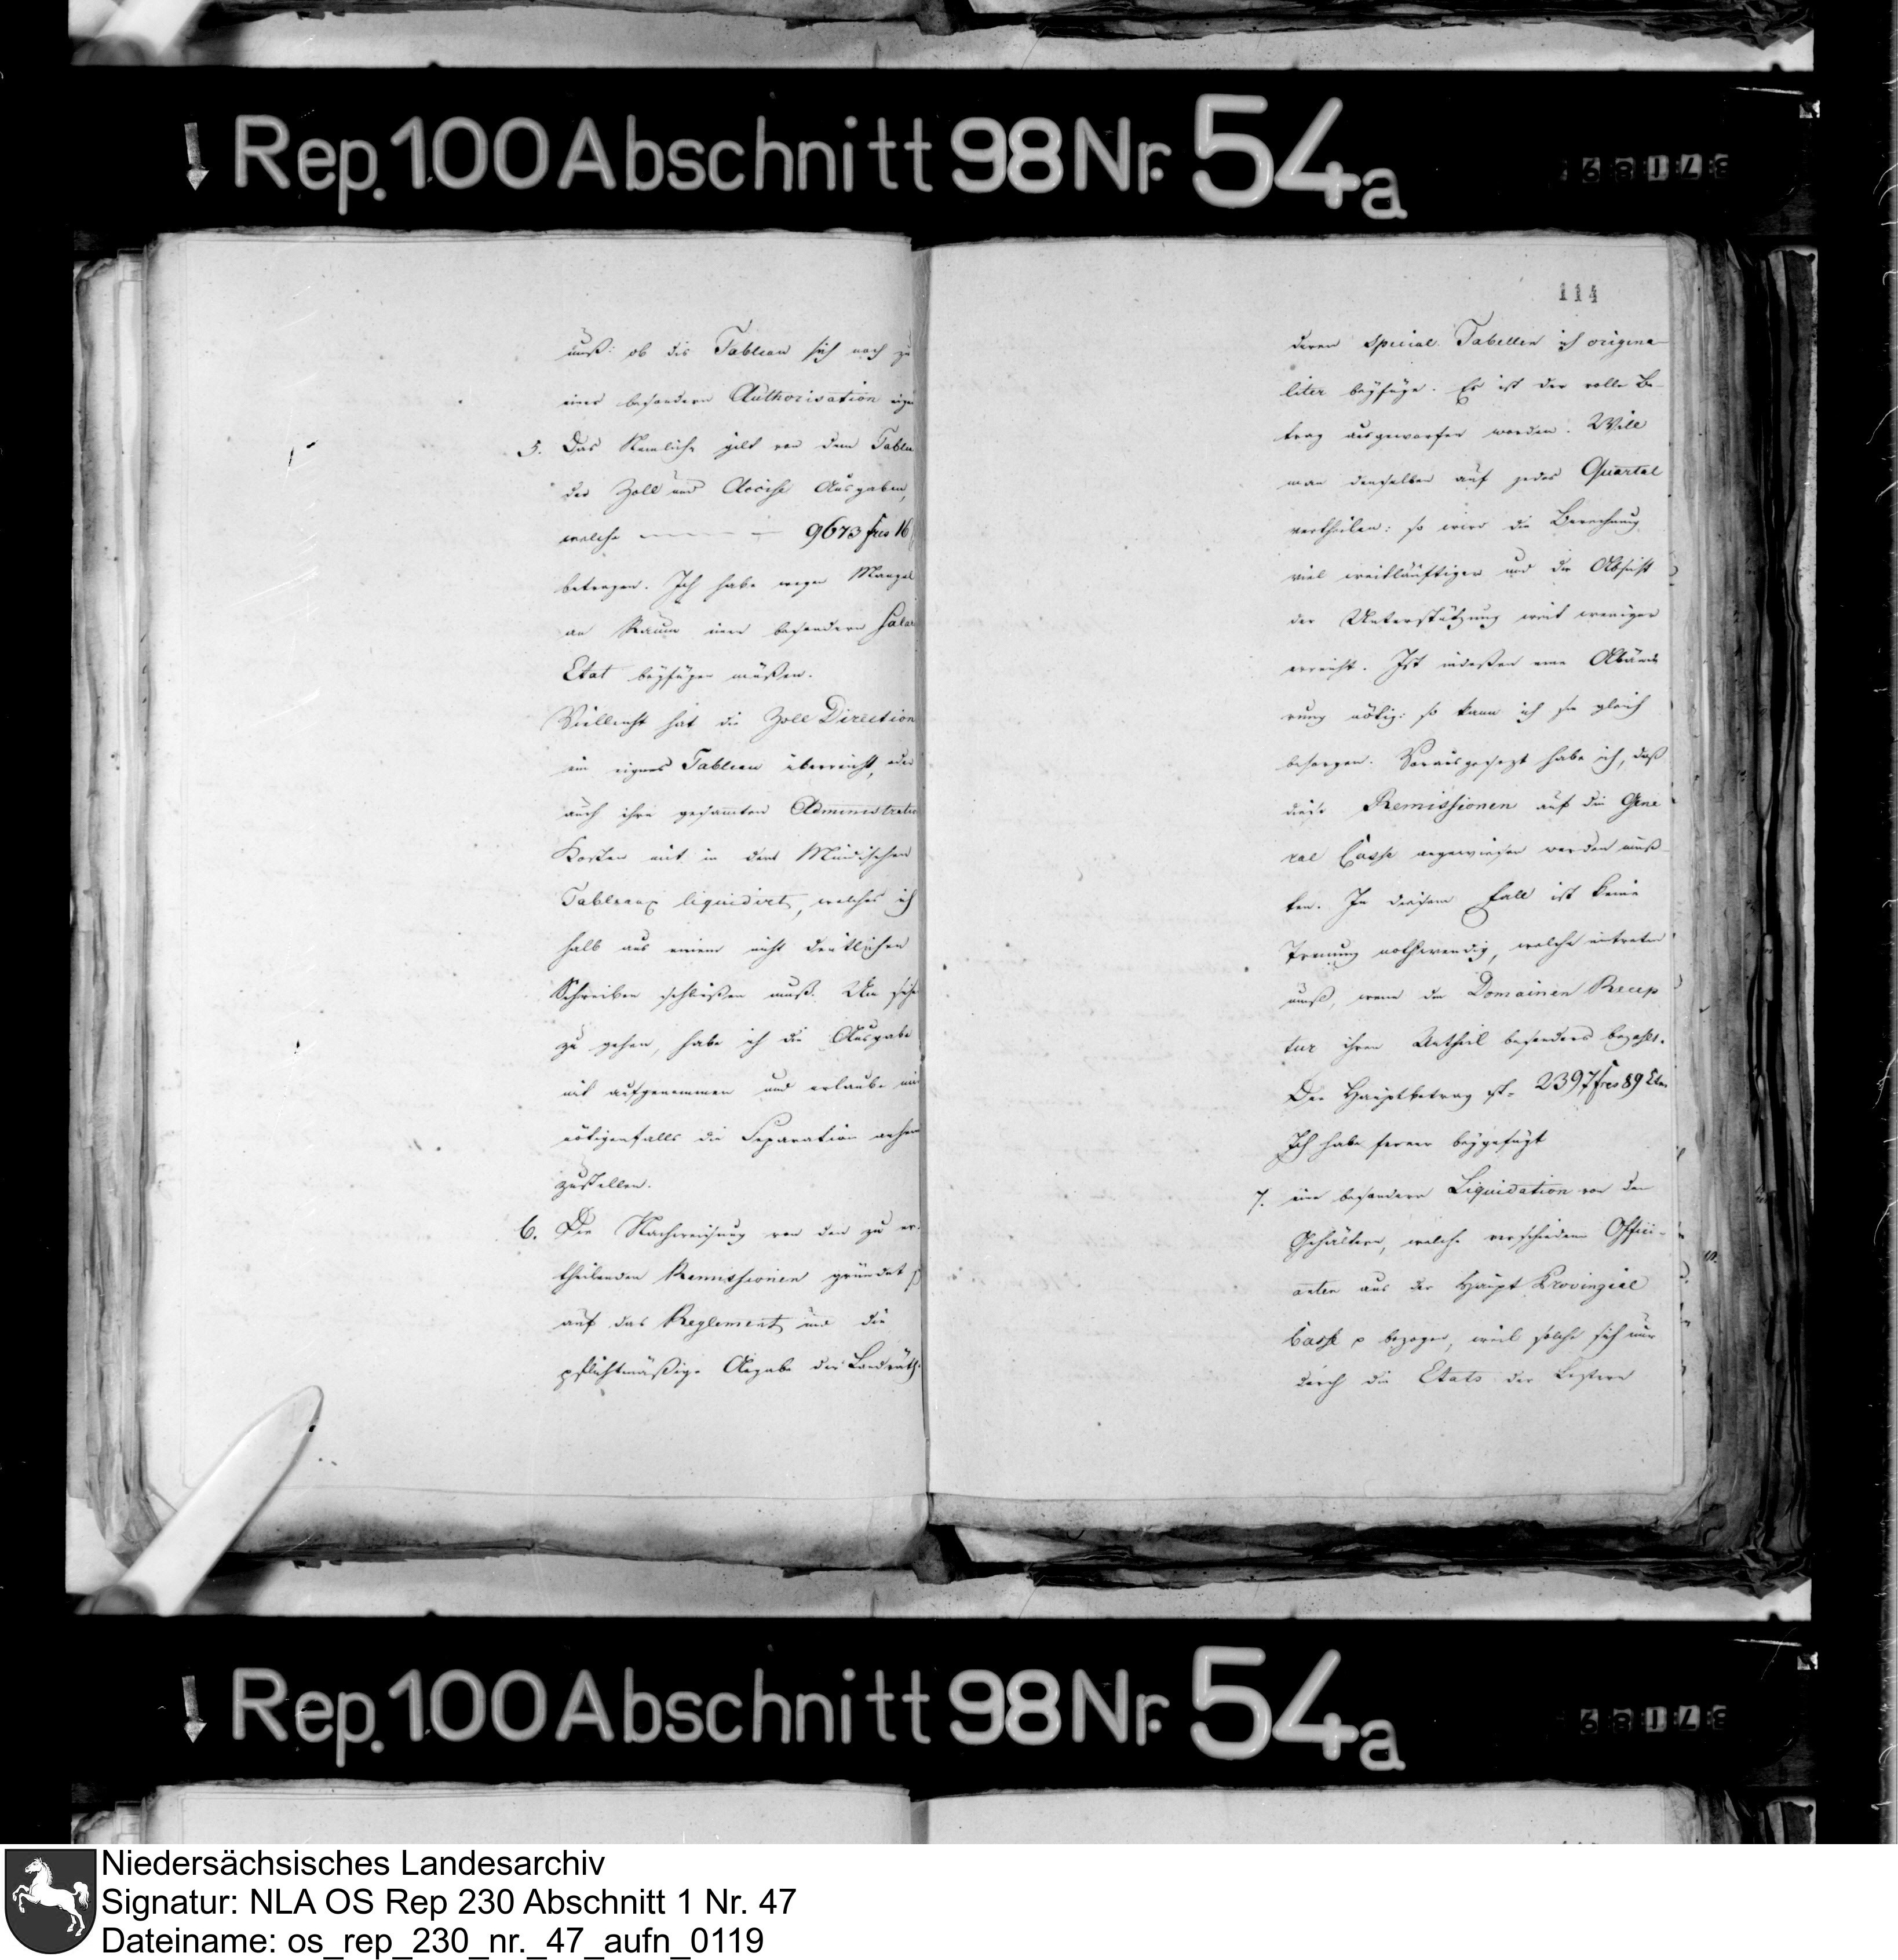 Rep. 100 Abschnitt 98 Nr. 54a
muß: ob dis Tableau sich noch zu
einer besondern Authorisation eign
5. Das Nemliche gilt von dem Tablea
der Zoll und Accise Ausgaben,
welche 9673 frcs 16
betragen. Ich habe wegen Mangel
an Raum einen besondern Salar
Etat beyfügen müßen.
Vielleicht hat die Zoll Direction
ein eignes Tableau überreicht, oder
auch ihre gesamten Administratio
Kosten mit in dem Mindischen
Tableaux liquidirt, welches ich
halb aus einem nicht deutlichen
Schreiben schlüßen muß. Um siche
zu gehen, habe ich die Ausgabe
mit aufgenommen und erlaube mir
nötigenfalls die Separation anheim
zustellen.
6. Die Nachweisung von den zu er
theilenden Remissionen gründet s
auf das Reglement und die
pflichtmäßige Angabe der Landräth
114
deren special. Tabellen ich origina
liter beyfüge. Es ist der volle Be-
trag ausgeworfen worden. Will
man denselben auf jedes Quartal
vertheilen: so wird die Berechnung
viel weitläuftiger und die Absicht
der Unterstützung weit weniger
erreicht. Ist indeßen eine Abände
rung nötig: so kann ich sie gleich
besorgen. Vorausgesezt habe ich, daß
diese Remissionen auf die Gene
ral Casse angewiesen werden muß-
ten. In diesem Fall ist keine
Trennung nothwendig, welche eintreten
muß, wenn die Domainen Recep
tur ihren Antheil besonders bezahlt.
Der Hauptbetrag ist 2397 frcs 89 Ctm
Ich habe ferner beygefügt
7. eine besondere Liquidation von den
Gehältern, welche verschiedene Offici-
anten aus der Haupt Provinzial
Casse bezogen, weil solche sich nur
durch die Etats der Lextern
Rep. 100 Abschnitt 98 Nr. 54a
Niedersächsisches Landesarchiv
Signatur: NLA OS Rep 230 Abschnitt 1 Nr. 47
Dateiname: os_rep_230_nr._47_aufn_0119